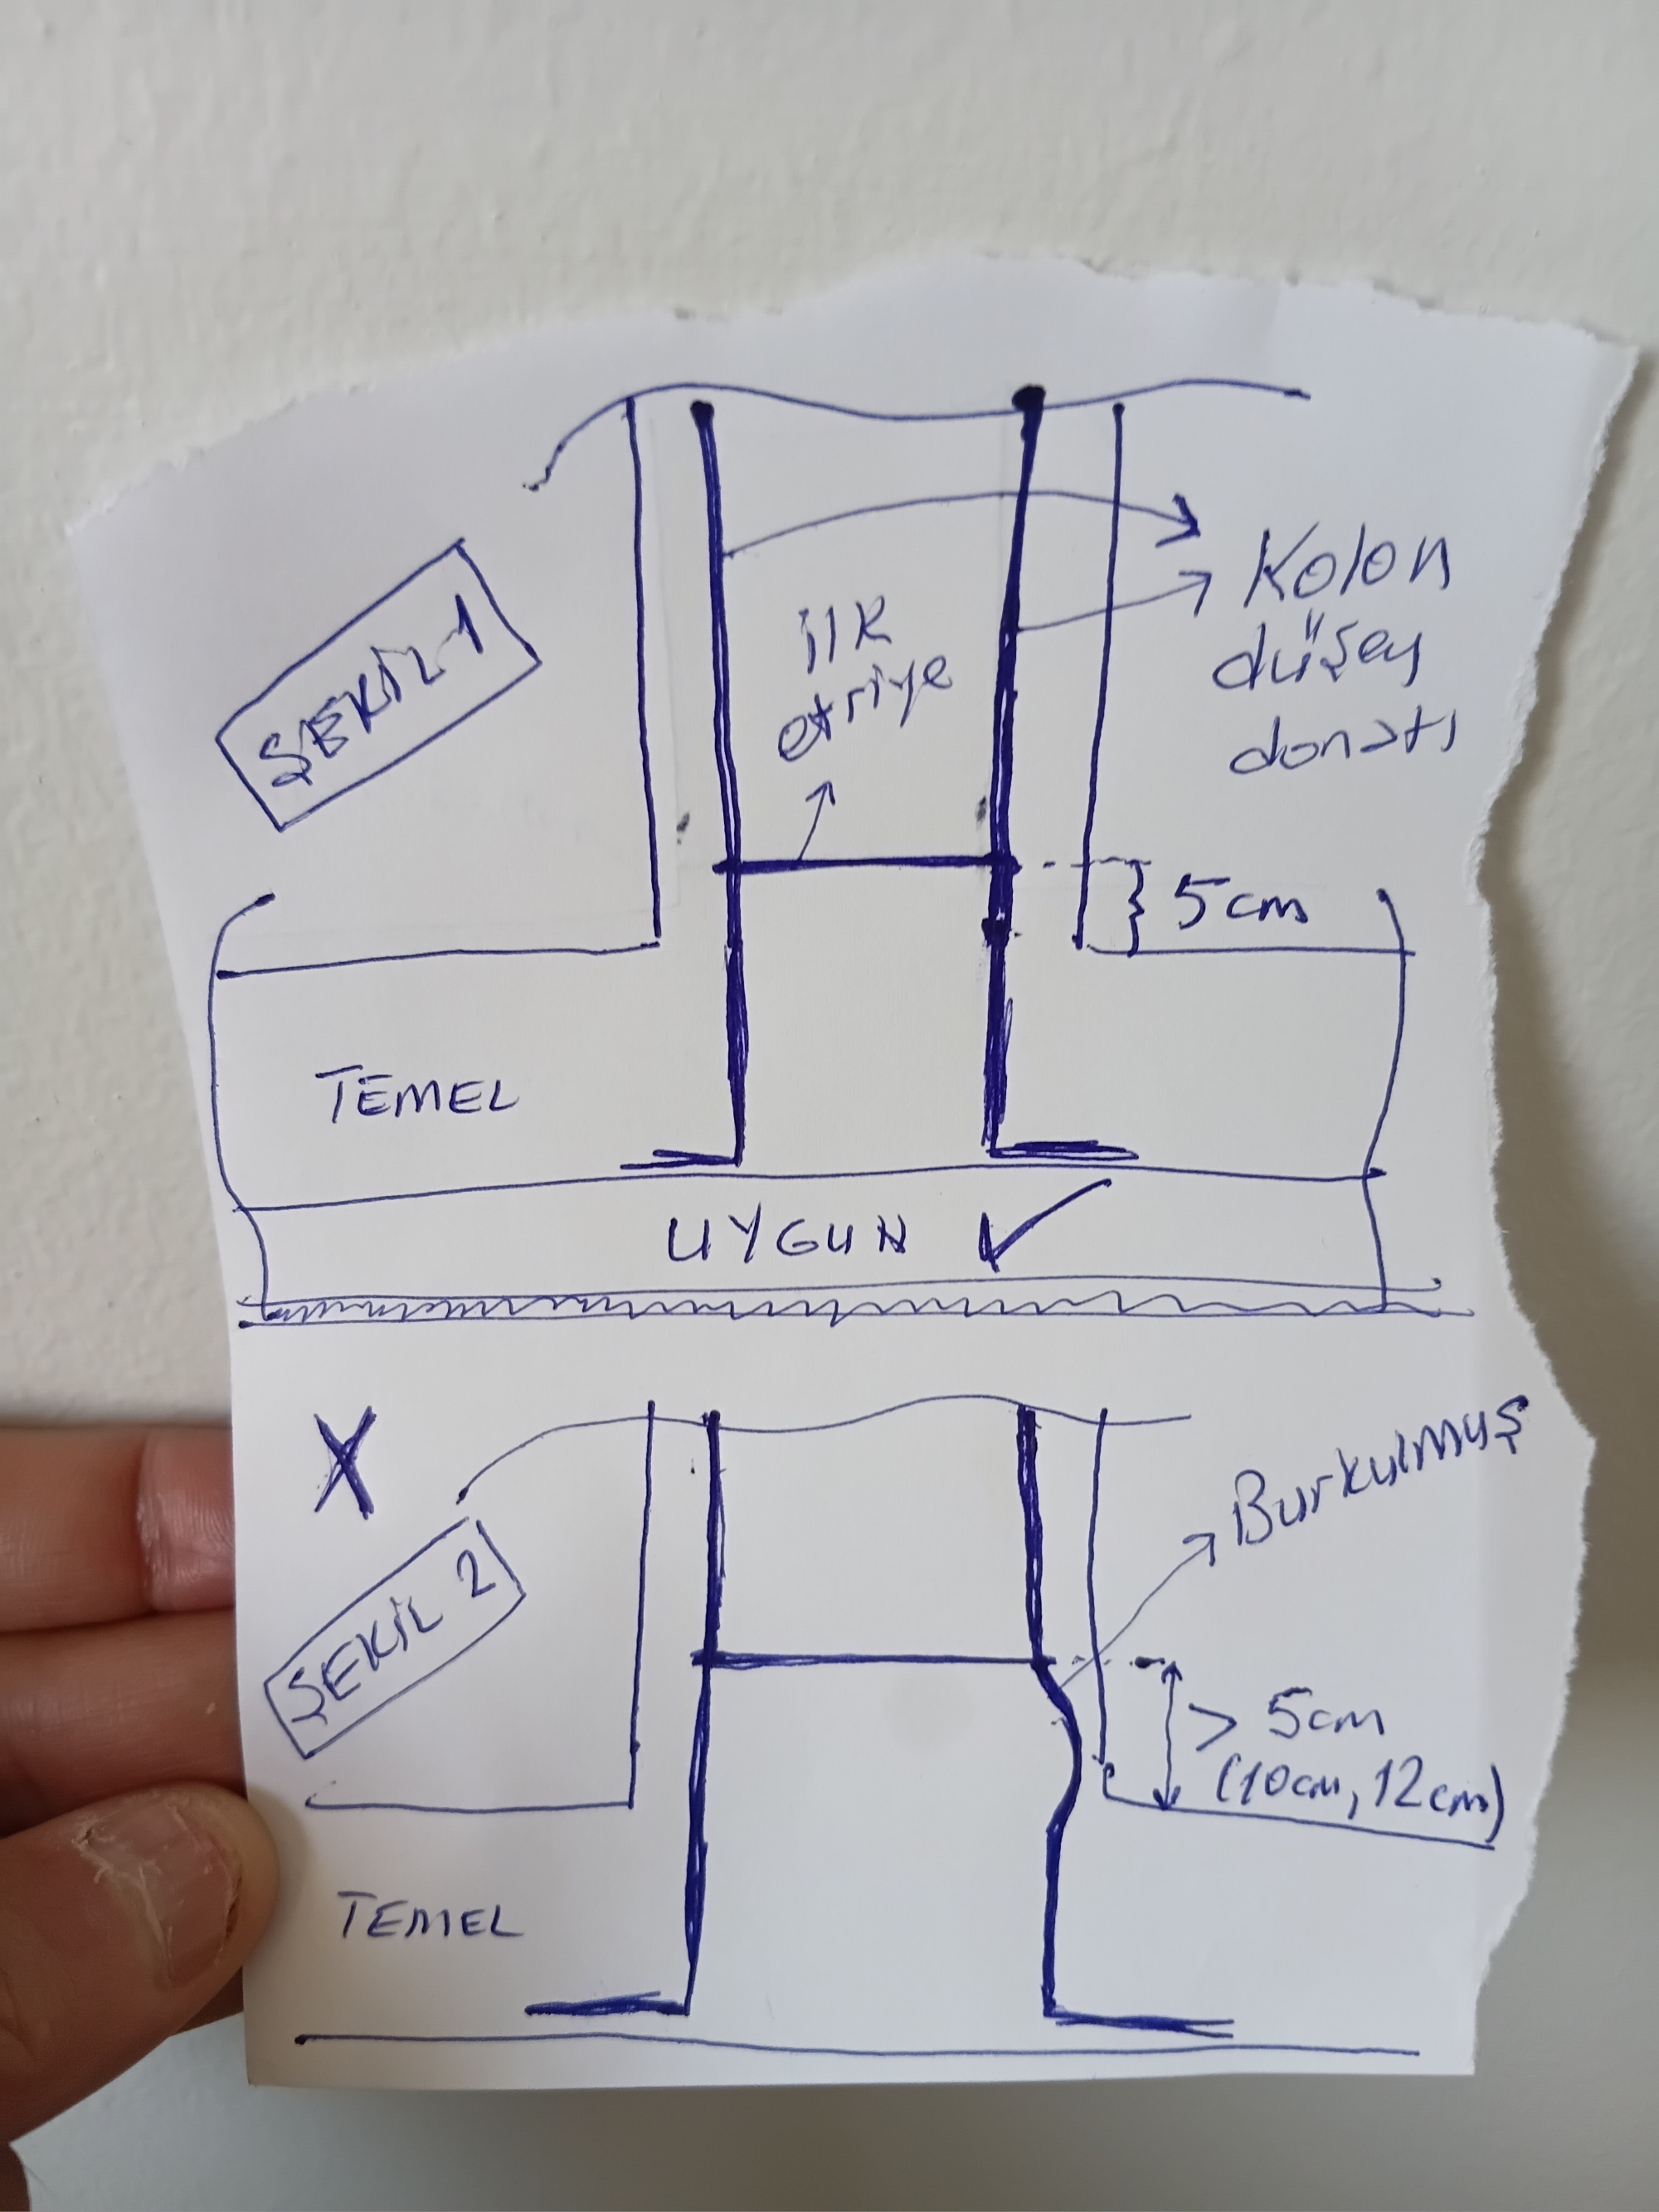 ŞEKİL-1
Kolon
düşey
donatı
ilk
etriye
5cm
TEMEL
UYGUN ✓
X
ŞEKİL 2
Burkulmuş
> 5cm
(10cm, 12cm)
TEMEL